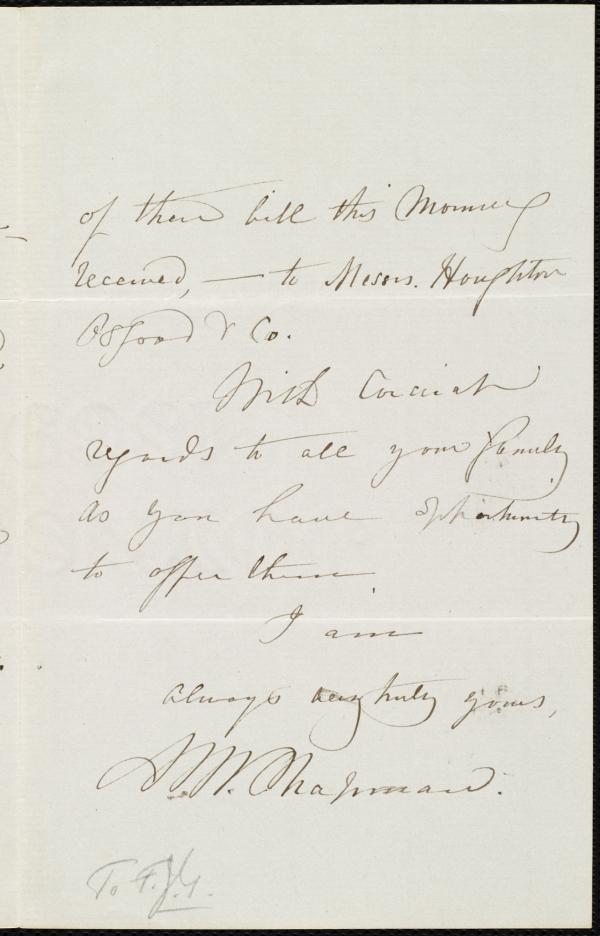 of their bill this Morning
received, — to Messrs. Houghton
Osgood & Co.
With Cordial
regards to all your family
as you have opportunity
to offer them.
I am
always very truly yours,
M. W. Chapman.
To F. J. G.